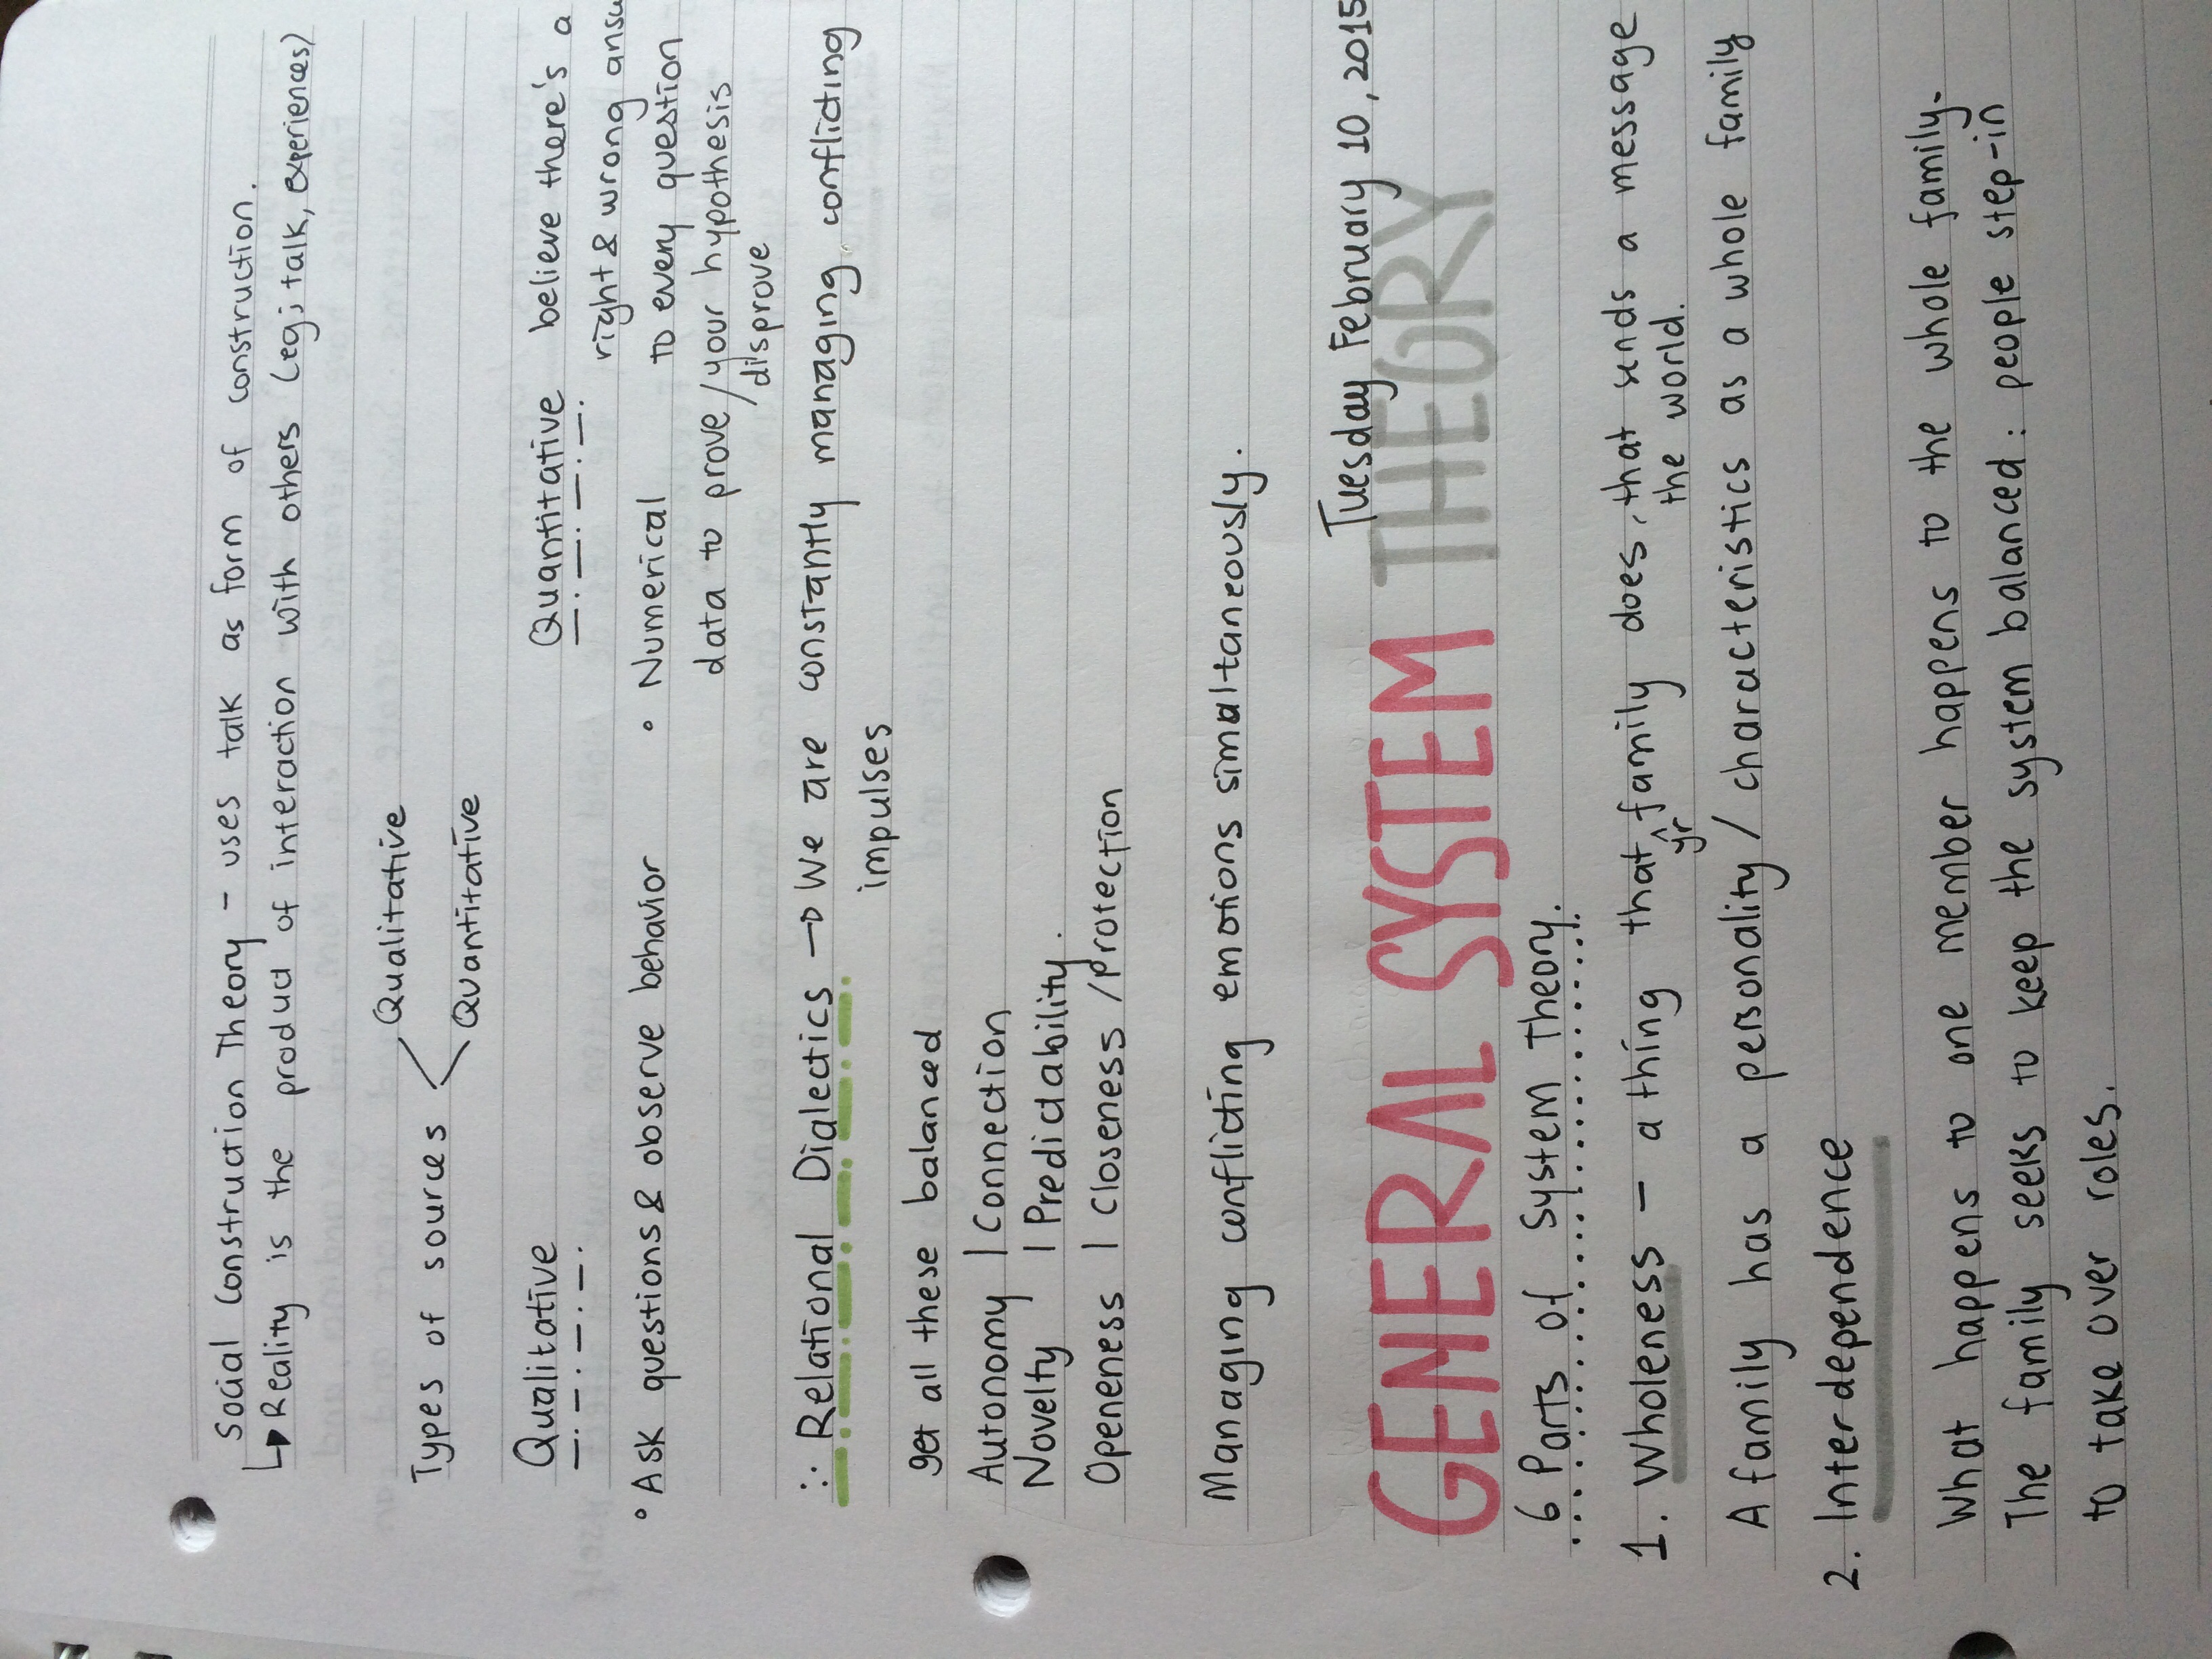 Social Construction Theory - uses talk as form of construction.
↳ Reality is the product of interaction with others (eg; talk, experiences)
Types of sources < Qualitative
Quantitative
Qualitative
• Ask questions & observe behavior
Quantitative believe there's a
right & wrong
• Numerical to every question
data to prove/your hypothesis
disprove
∴ Relational Dialectics → We are constantly managing conflicting
impulses
get all these balanced
Autonomy | Connection
Novelty | Predictability.
Openeness | Closeness/Protection
Managing conflicting emotions simultaneously.
Tuesday February 10, 2015
GENERAL SYSTEM THEORY
6 Parts of System Theory.
1. Wholeness - a thing that ^ family does, that sends a message
yr the world.
A family has a personality/characteristics as a whole family
2. Interdependence
What happens to one member happens to the whole family.
The family seeks to keep the system balanced: people step-in
to take over roles.